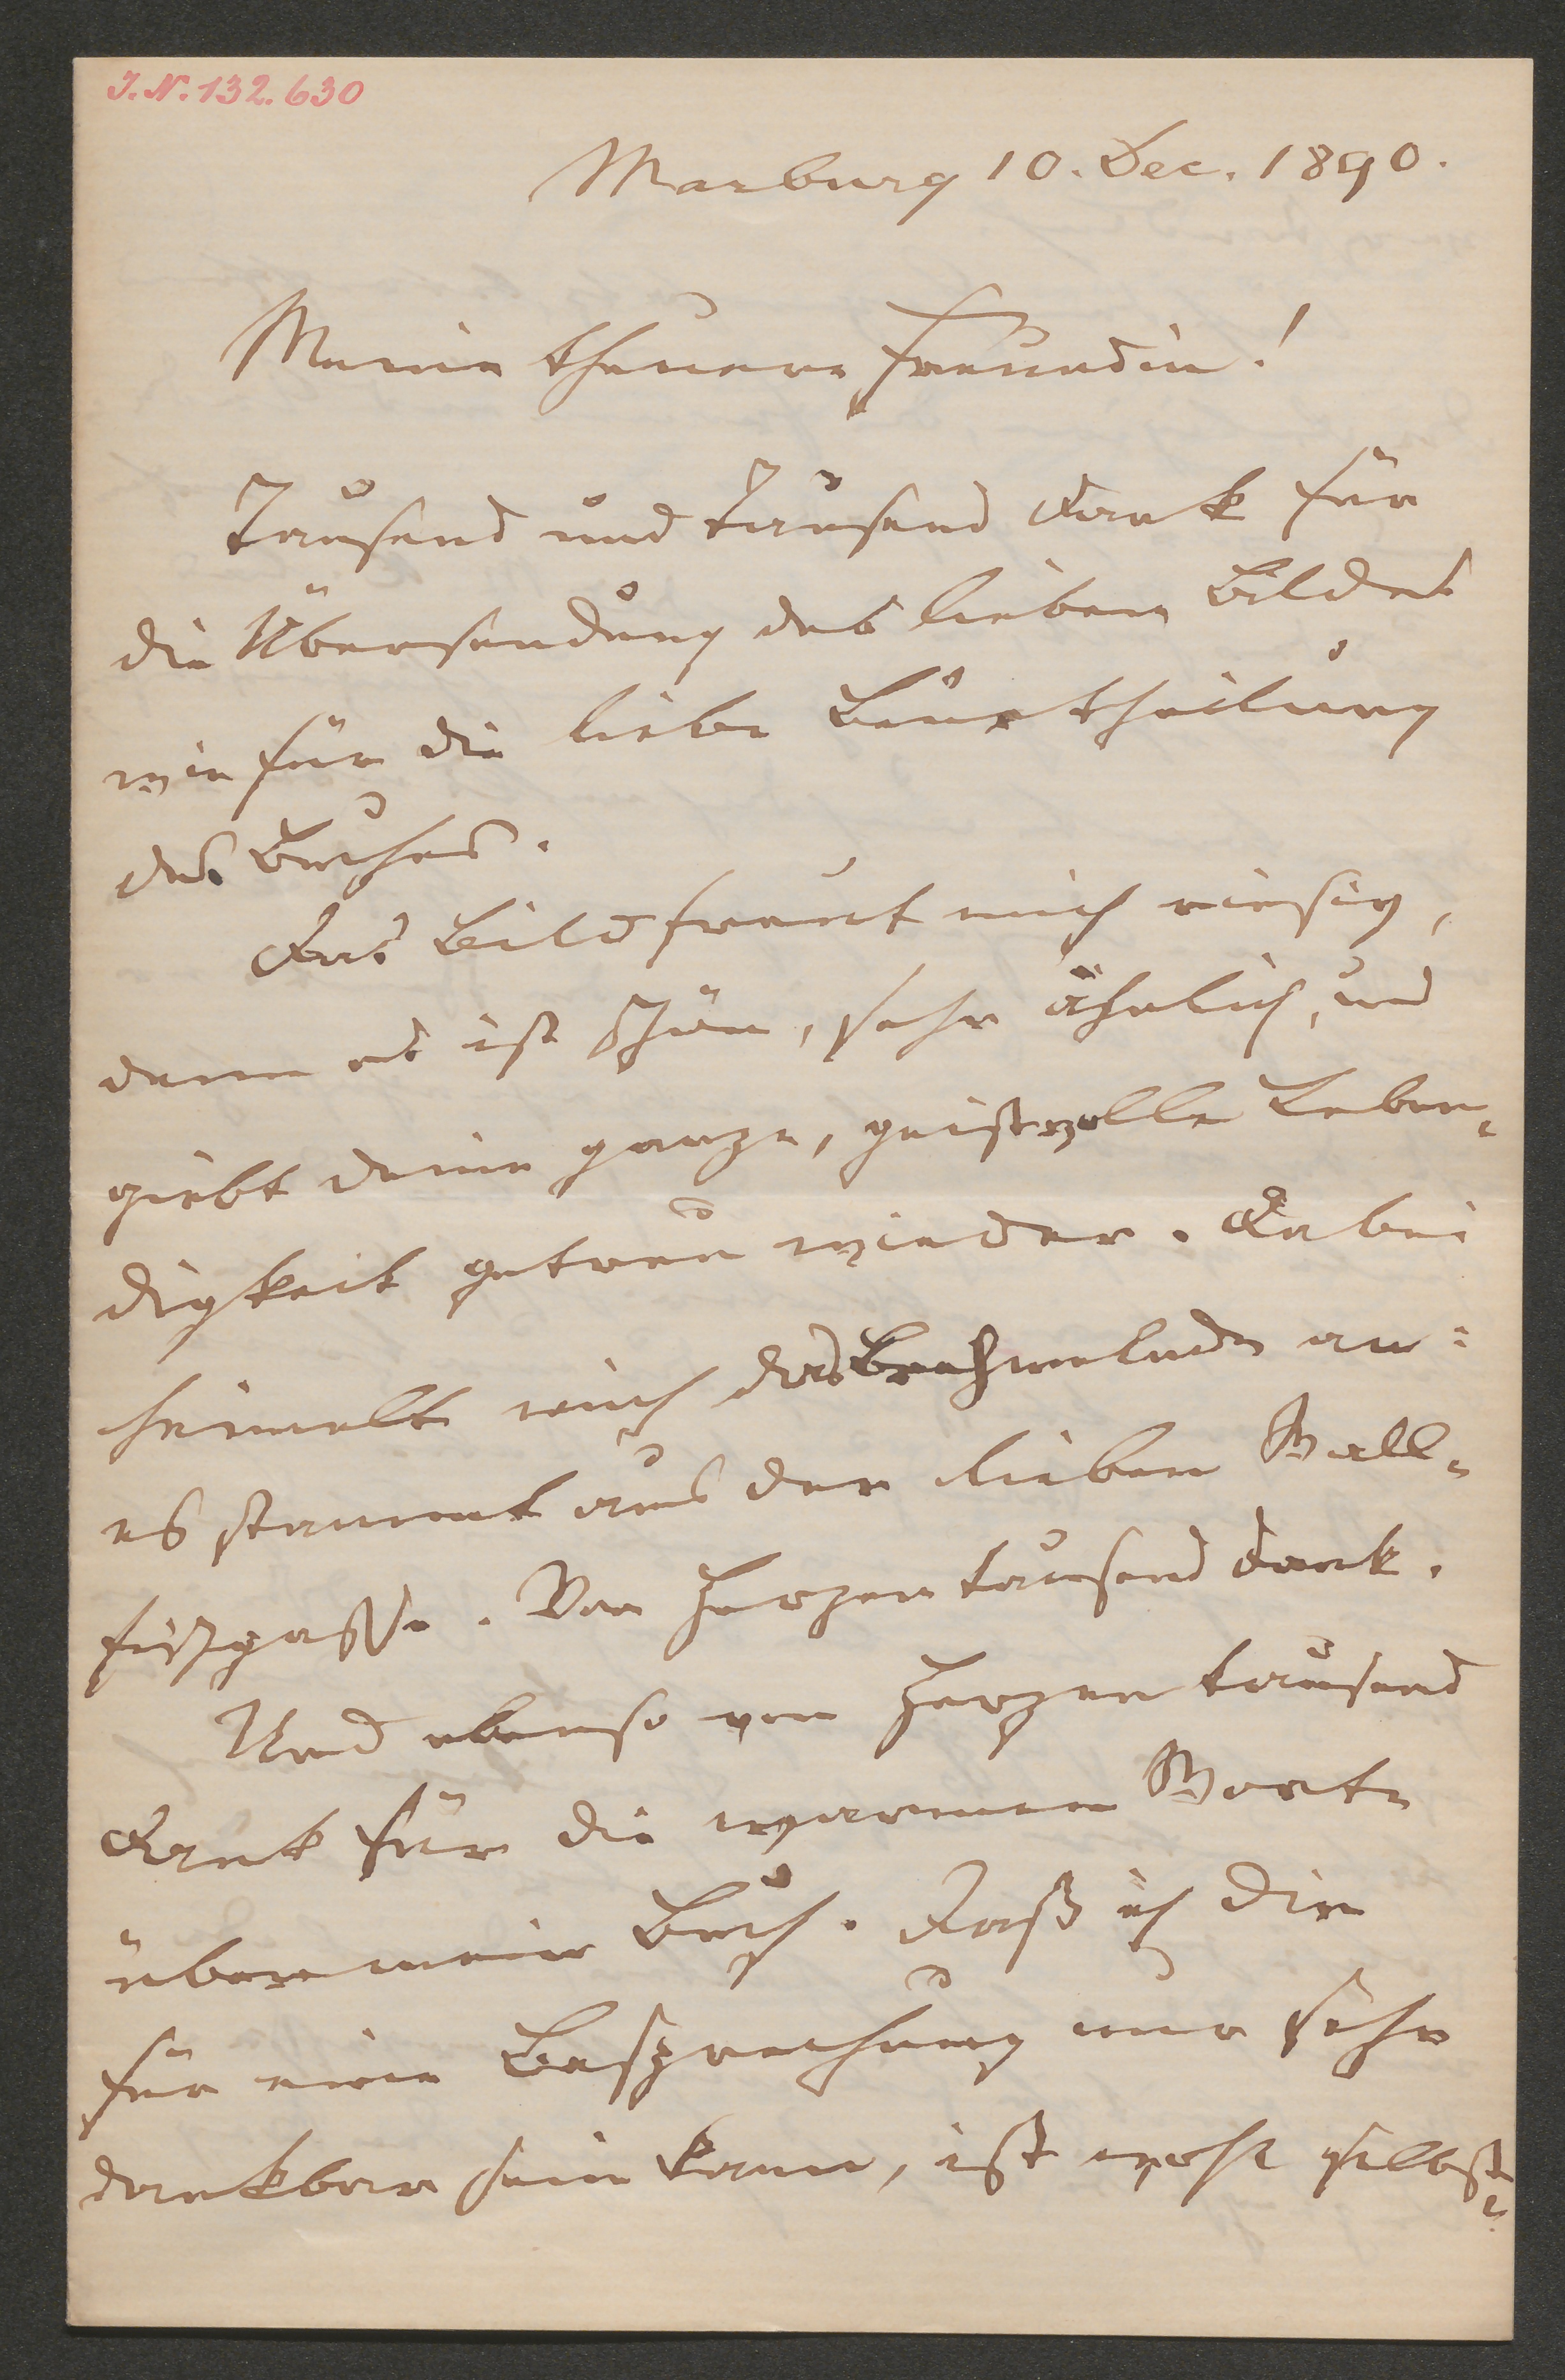 J.N. 132.630
Marburg 10. Dec. 1890.
Meine theuere Freundin!
Tausend und tausend Dank für
die Übersendung des lieben Bildes
wie für die liebe Beurtheilung
des Buches.
Das Bild freut mich riesig,
denn es ist schön, sehr ähnlich, und
giebt deine ganze, geistvolle Leben-
digkeit getreu wieder. Dabei
heimelt mich das an:
es stammt aus der lieben Wall-
fischgasse. Von Herzen tausend Dank.
Und ebenso von Herzen tausend
Dank für die warmen Worte
über mein Buch. Daß ich Dir
für eine Besprechung nur sehr
dankbar sein kann, ist wohl selbst-